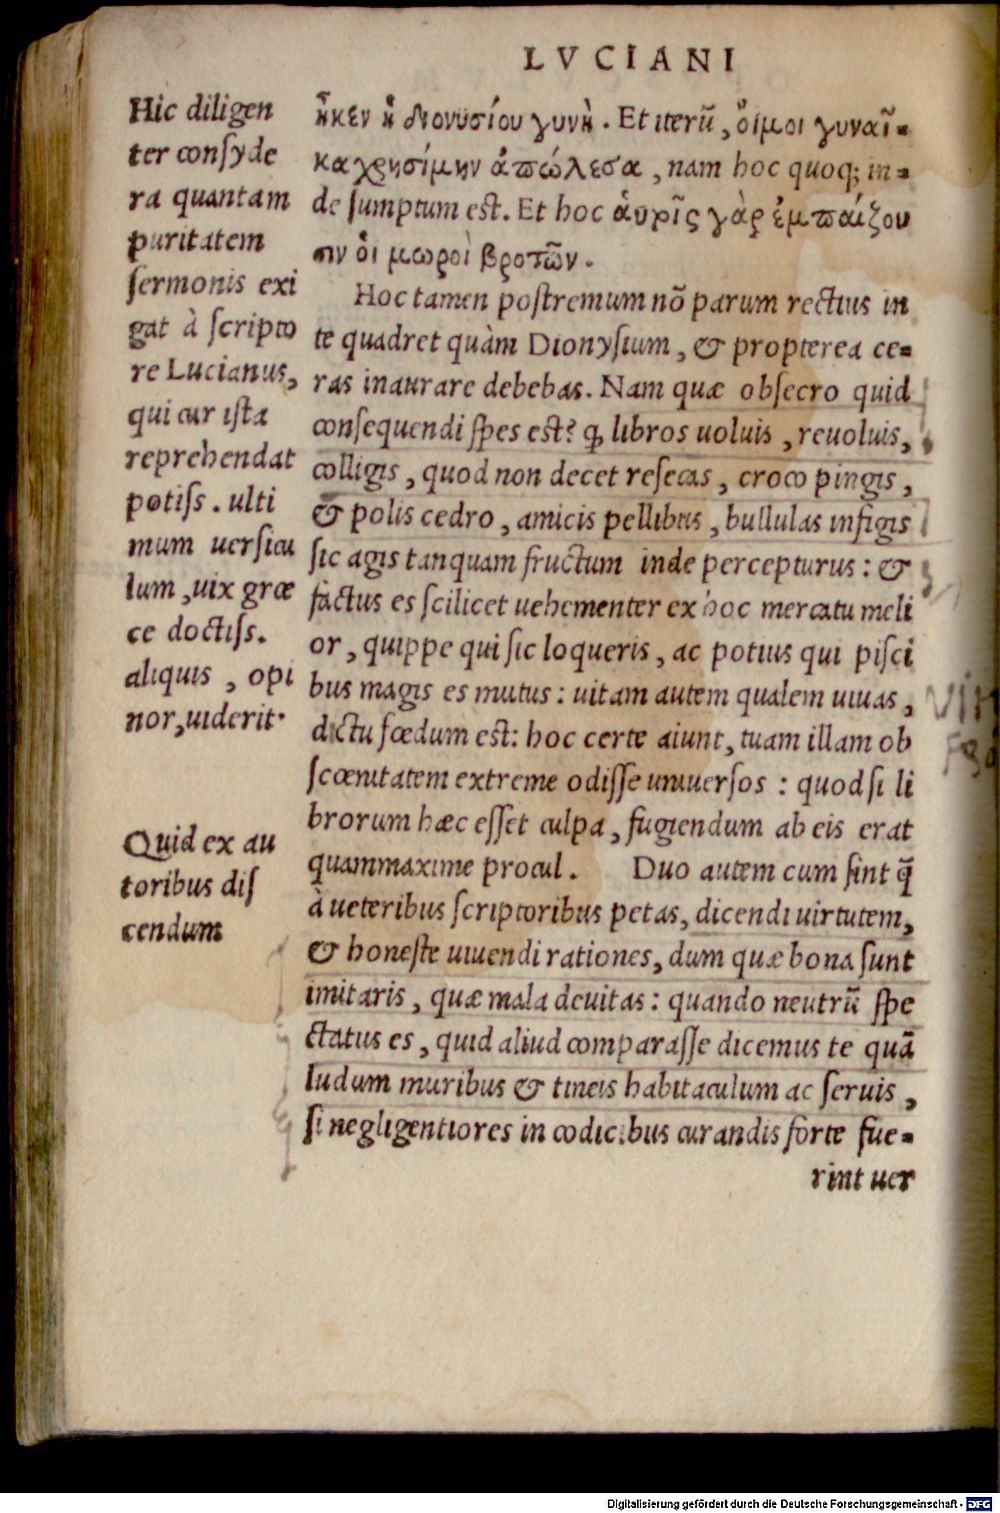 LVCIANI
Hic diligen
ter consyde
ra quantam
puritatem
sermonis exi
gat à scripto
re Lucianus,
qui cur ista
reprehendat
potiss. ulti
mum uersicu
lum, uix græ
ce doctiss.
aliquis, opi
nor, uiderit.
Quid ex au
toribus dis
cendum
ἧκεν ἡ διονυσίου γυνὴ. Et iterũ, ὄιμοι γυναῖ-
κα χρησίμην ἀπώλεσα, nam hoc quoq; in-
de sumptum est. Et hoc ἁυρῖς γὰρ ἐμπαίζου
σιν ὁι μωροὶ βροτῶν.
Hoc tamen postremum nõ parum rectius in
te quadret quàm Dionysium, & propterea ce-
ras inaurare debebas. Nam quæ obsecro quid
consequendi spes est? ꝙ libros uoluis, reuoluis,
colligis, quod non decet resecas, croco pingis,
& polis cedro, amicis pellibus, bullulas infigis
sic agis tanquam fructum inde percepturus: &
factus es scilicet uehementer ex hoc mercatu meli
or, quippe qui sic loqueris, ac potius qui pisci
bus magis es mutus: uitam autem qualem uiuas,
dictu fœdum est: hoc certe aiunt, tuam illam ob
scœnitatem extreme odisse uniuersos: quod si li
brorum hæc esset culpa, fugiendum ab eis erat
quammaxime procul. Duo autem cum sint q̃
à ueteribus scriptoribus petas, dicendi uirtutem,
& honeste uiuendi rationes, dum quæ bona sunt
imitaris, quæ mala deuitas: quando neutrũ spe
ctatus es, quid aliud comparasse dicemus te quã
ludum muribus & tineis habitaculum ac seruis,
si negligentiores in codicibus curandis forte fue-
rint uer
Digitalisierung gefördert durch die Deutsche Forschungsgemeinschaft - DFG